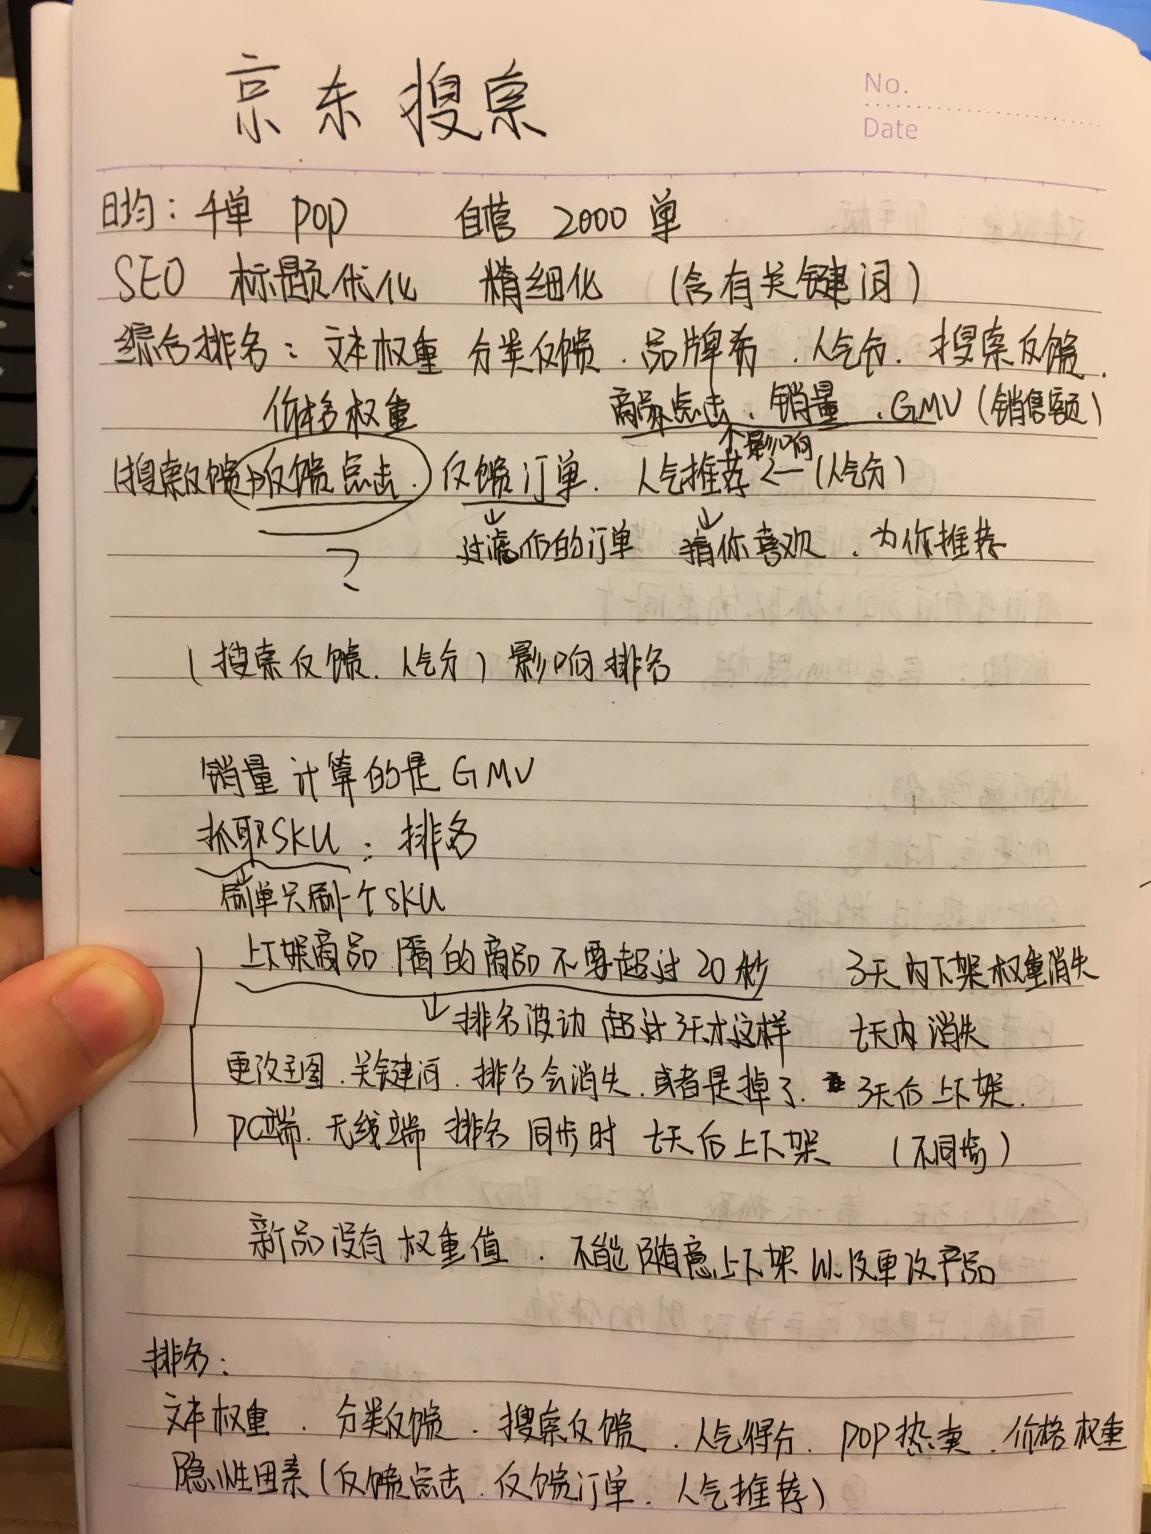 京东搜索
No.
Date
日均：千单 POP 自营 2000 单
SEO 标题优化 精细化 （含有关键词）
综合排名：文本权重 分类反馈、品牌 、人气分、搜索反馈、
价格权重 商品点击、销量、GMV（销售额）
影响
（搜索反馈）反馈点击、反馈订单、人气推荐 ← （人气分）
↓ ↓
过滤后的订单 猜你喜欢、为你推荐
?
（搜索反馈、人气分）影响排名
销量计算的是GMV
抓取SKU：排名
刷单只刷一个SKU
上下架商品 隔的商品不要超过20秒 3天内下架权重消失
↓排名波动 超过3天才这样 七天内消失
更改主图、关键词、排名会消失、或者是掉了、 3天后上下架、
PC端、无线端 排名同步时 七天后上下架 （不同步）
新品没有权重值、不能随意上下架以及更改产品
排名：
文本权重、分类反馈、搜索反馈、人气得分、POP热卖、价格权重
隐性因素（反馈点击、反馈订单、人气推荐）